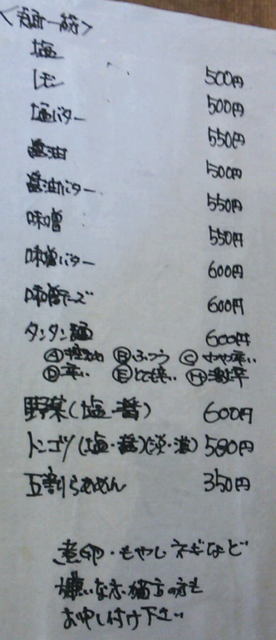 <麺一筋>
塩 500円
レモン 500円
塩バター 550円
醤油 500円
醤油バター 550円
味噌 550円
味噌バター 600円
味噌チーズ 600円
タンタン麺 600円
Ⓐ控えめ Ⓑふつう Ⓒやや辛い
Ⓓ辛い Ⓔとても辛い Ⓗ激辛
野菜(塩・醤) 600円
トンコツ(塩・醤)(淡・濃) 580円
五割らぁめん 350円
煮卵・もやし・ネギなど
嫌いな方・苦手の方も
お申し付け下さい